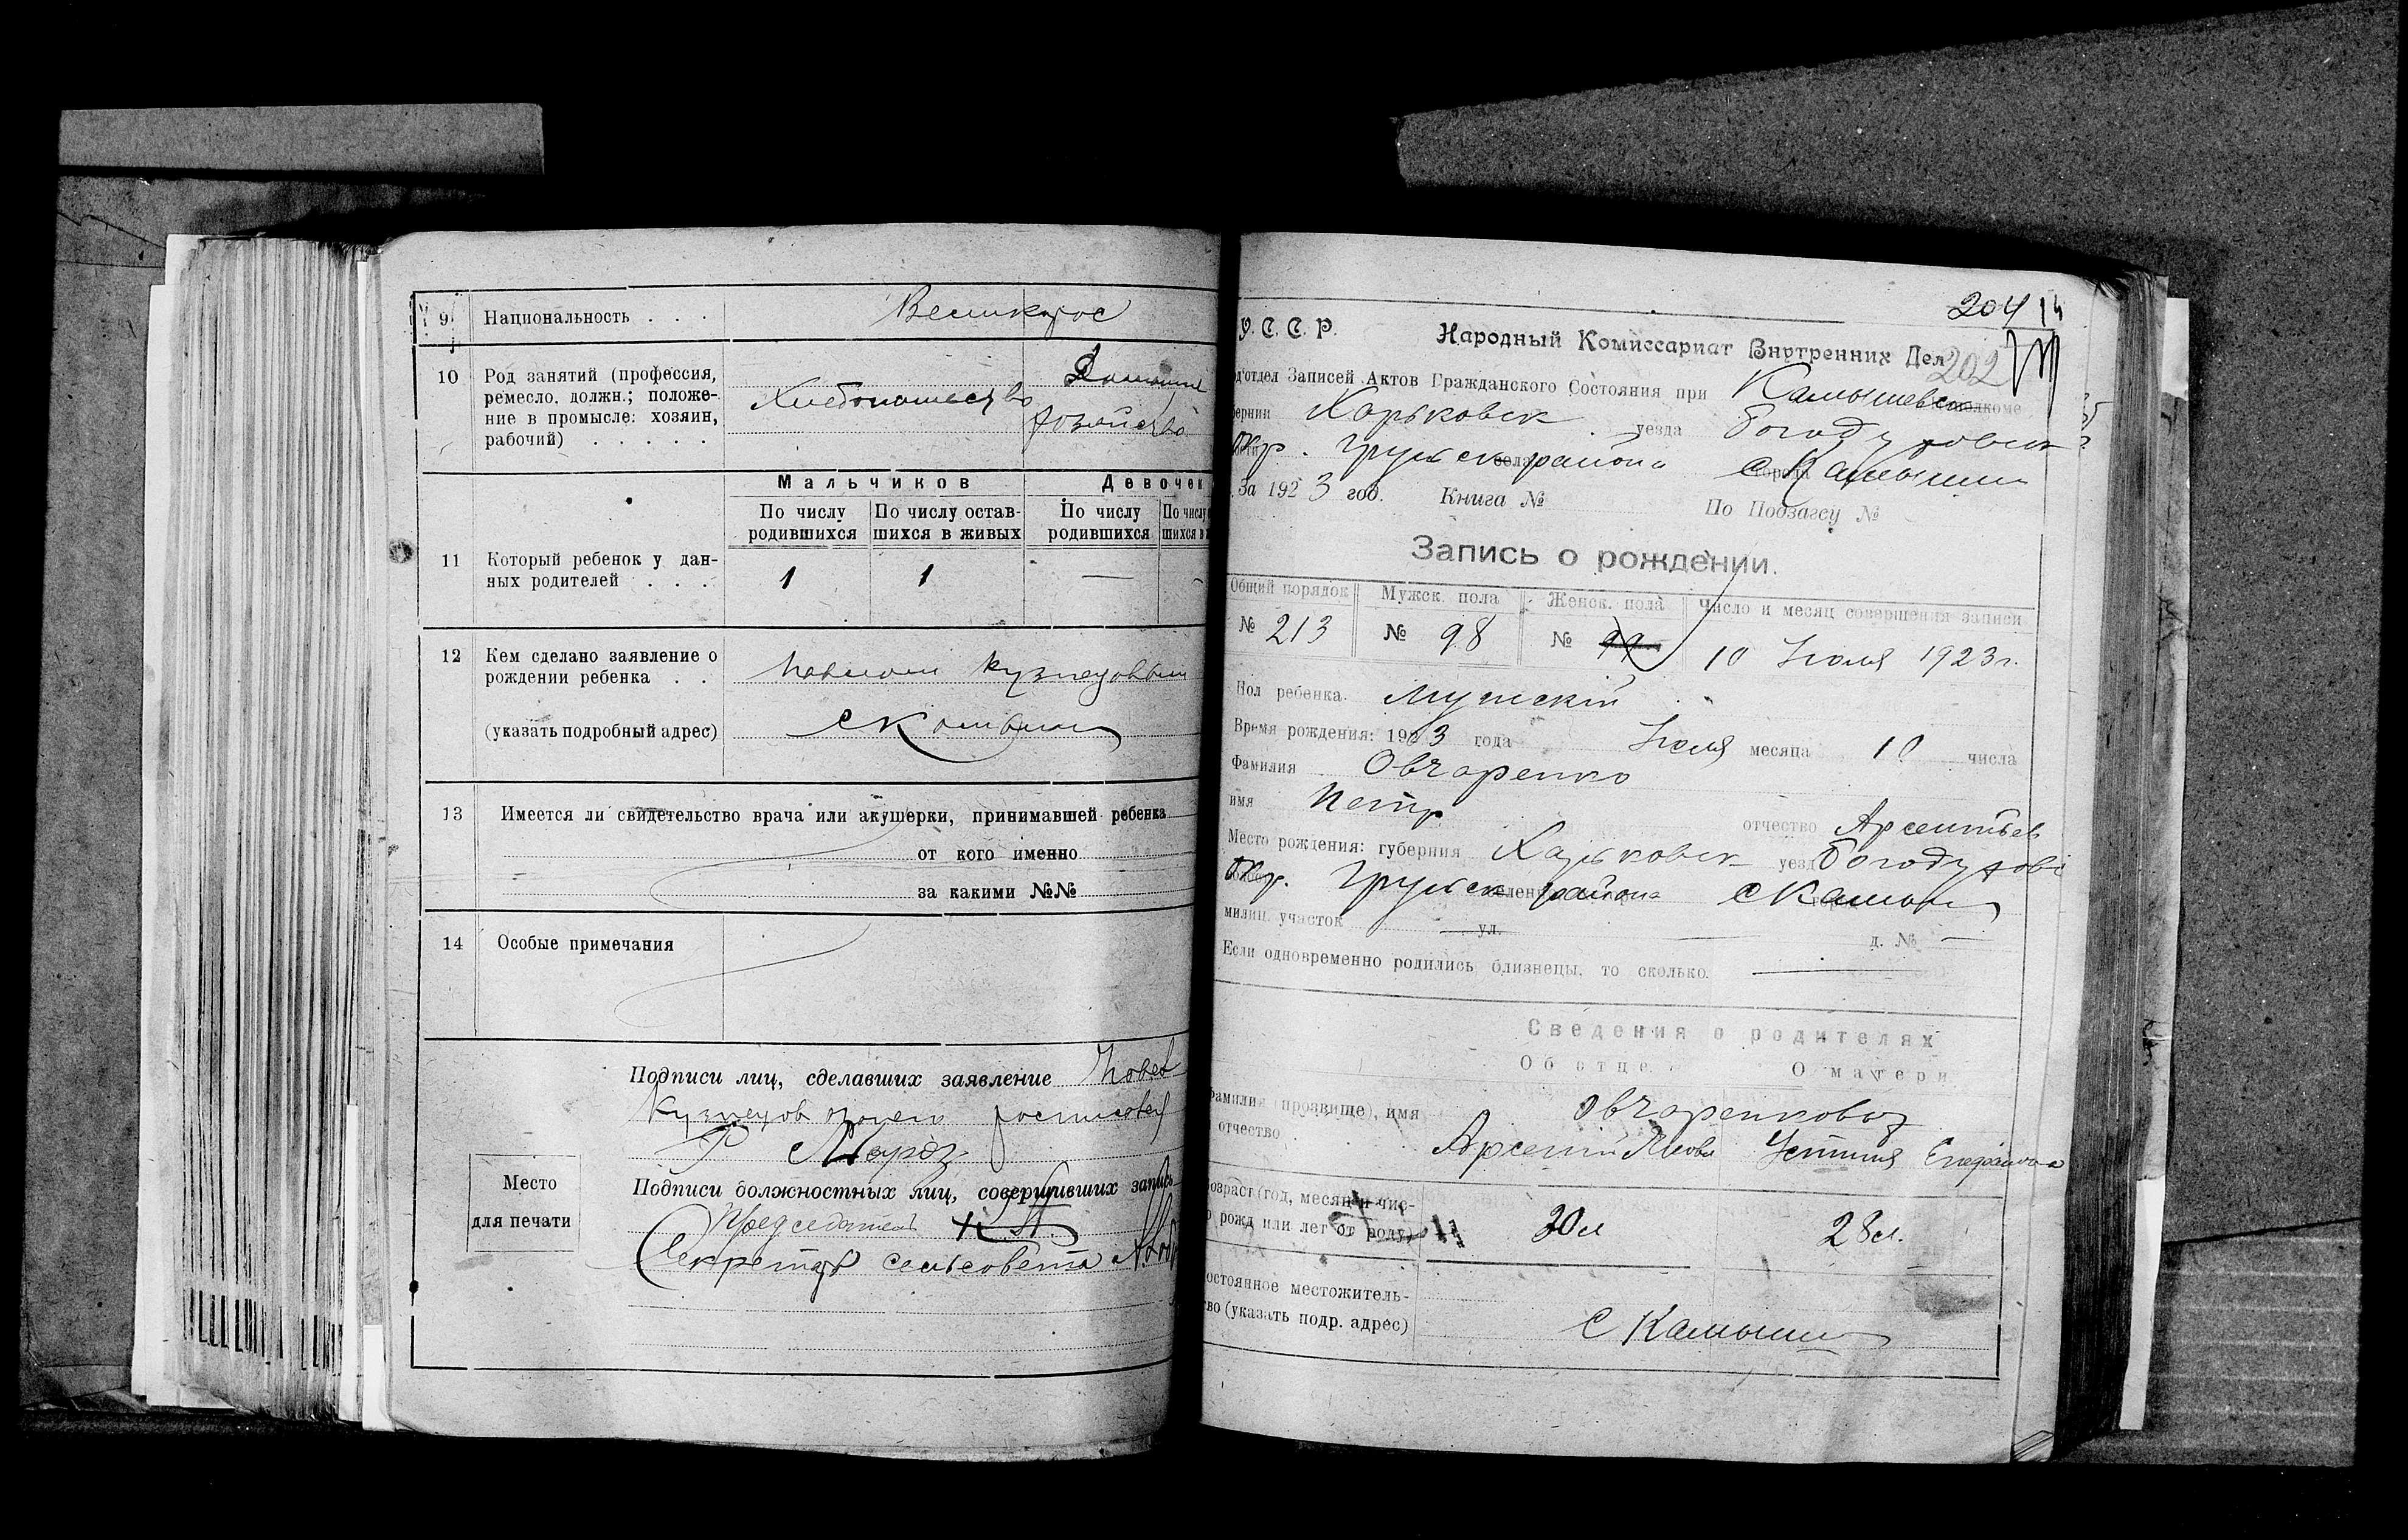 9 Национальность . . . Великорос
10 Род занятий (профессия,
ремесло, должн.; положе-
ние в промысле: хозяин,
рабочий) . . . . .
Хлебопашество
Домашне
хозяйство
Мальчиков Девочек
По числу родившихся По числу остав-шихся в живых По числу родившихся По числу
11 Который ребенок у дан-
ных родителей . . . 1 1 —
12 Кем сделано заявление о
рождении ребенка . . Павлом Кузнецовым
(указать подробный адрес) с Камыши
13 Имеется ли свидетельство врача или акушерки, принимавшей ребенка
от кого именно
за какими №№
14 Особые примечания
Подписи лиц, сделавших заявление Павел
Кузнецов
Р Мороз
Место
для печати
Подписи должностных лиц, совершивших запись
Председатель
Секретарь сельсовета
204 14
У. С. С. Р. Народный Комиссариат Внутренних Дел
202
одотдел Записей Актов Гражданского Состояния при Камышевск
ернии Харьковск уезда Богодуховск
окр. Грунск района с Камыши
За 1923 год. Книга № По Подзагсу №
Запись о рождении.
Общий порядок Мужск. пола Женск. пола Число и месяц совершения записи
№ 213 № 98 № 99 10 Июля 1923 г.
Пол ребенка. Мужскій
Время рождения: 1923 года Июля месяца 10 числа
Фамилия Овчаренко
имя Петр отчество Арсентьев
Место рождения: губерния Харьковск уезд Богодухові
окр. Грунск района с Камыши
милиц. участок — ул. — д. № —
Если одновременно родились близнецы, то сколько. —
Сведения о родителях
Об отце. О матери
фамилия (прозвище), имя
отчество
Овчаренкова
Арсений Яковл Устиния
возраст (год, месяц и чис-
о рожд или лет от роду) 30 л 28 л.
остоянное местожитель-
во (указать подр. адрес) с Камыши